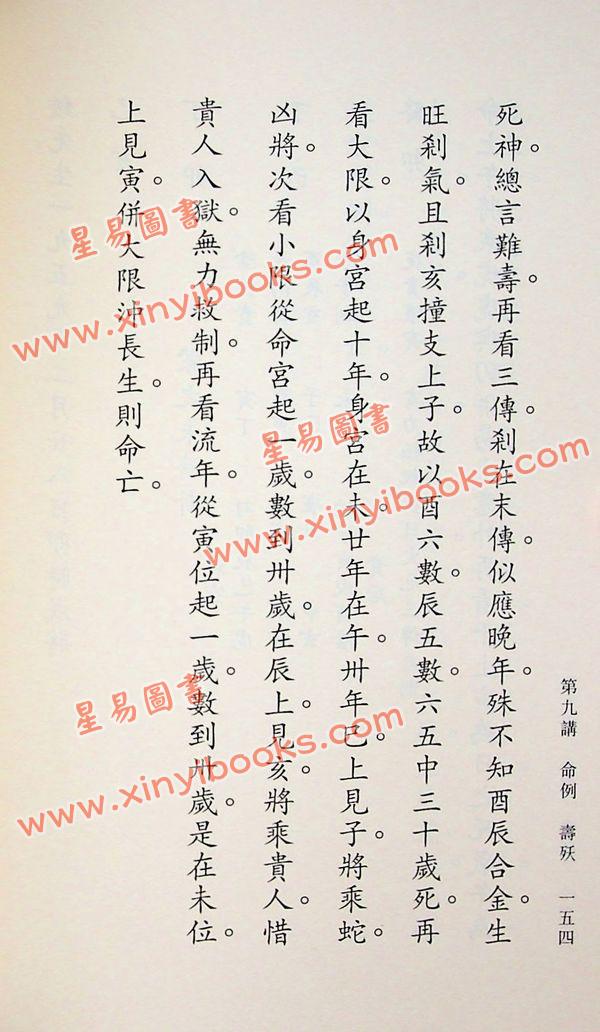 第九講 命例 壽殀 一五四
死神。總言難壽。再看三傳。剎在末傳。似應晚年。殊不知酉辰合金。生
旺剎氣。且剎亥撞支上子。故以酉六數。辰五數。六五中三十歲死。再
看大限。以身宮起十年。身宮在未。廿年在午。卅年巳上見子。將乘蛇。
凶將。次看小限從命宮起一歲。數到卅歲。在辰上。見亥將乘貴人。惜
貴人入獄。無力救制。再看流年。從寅位起一歲。數到卅歲。是在未位。
上見寅。併大限沖長生。則命亡。
星易圖書
www.xinyibooks.com
星易圖書
www.xinyibooks.com
星易圖書
www.xinyibooks.com